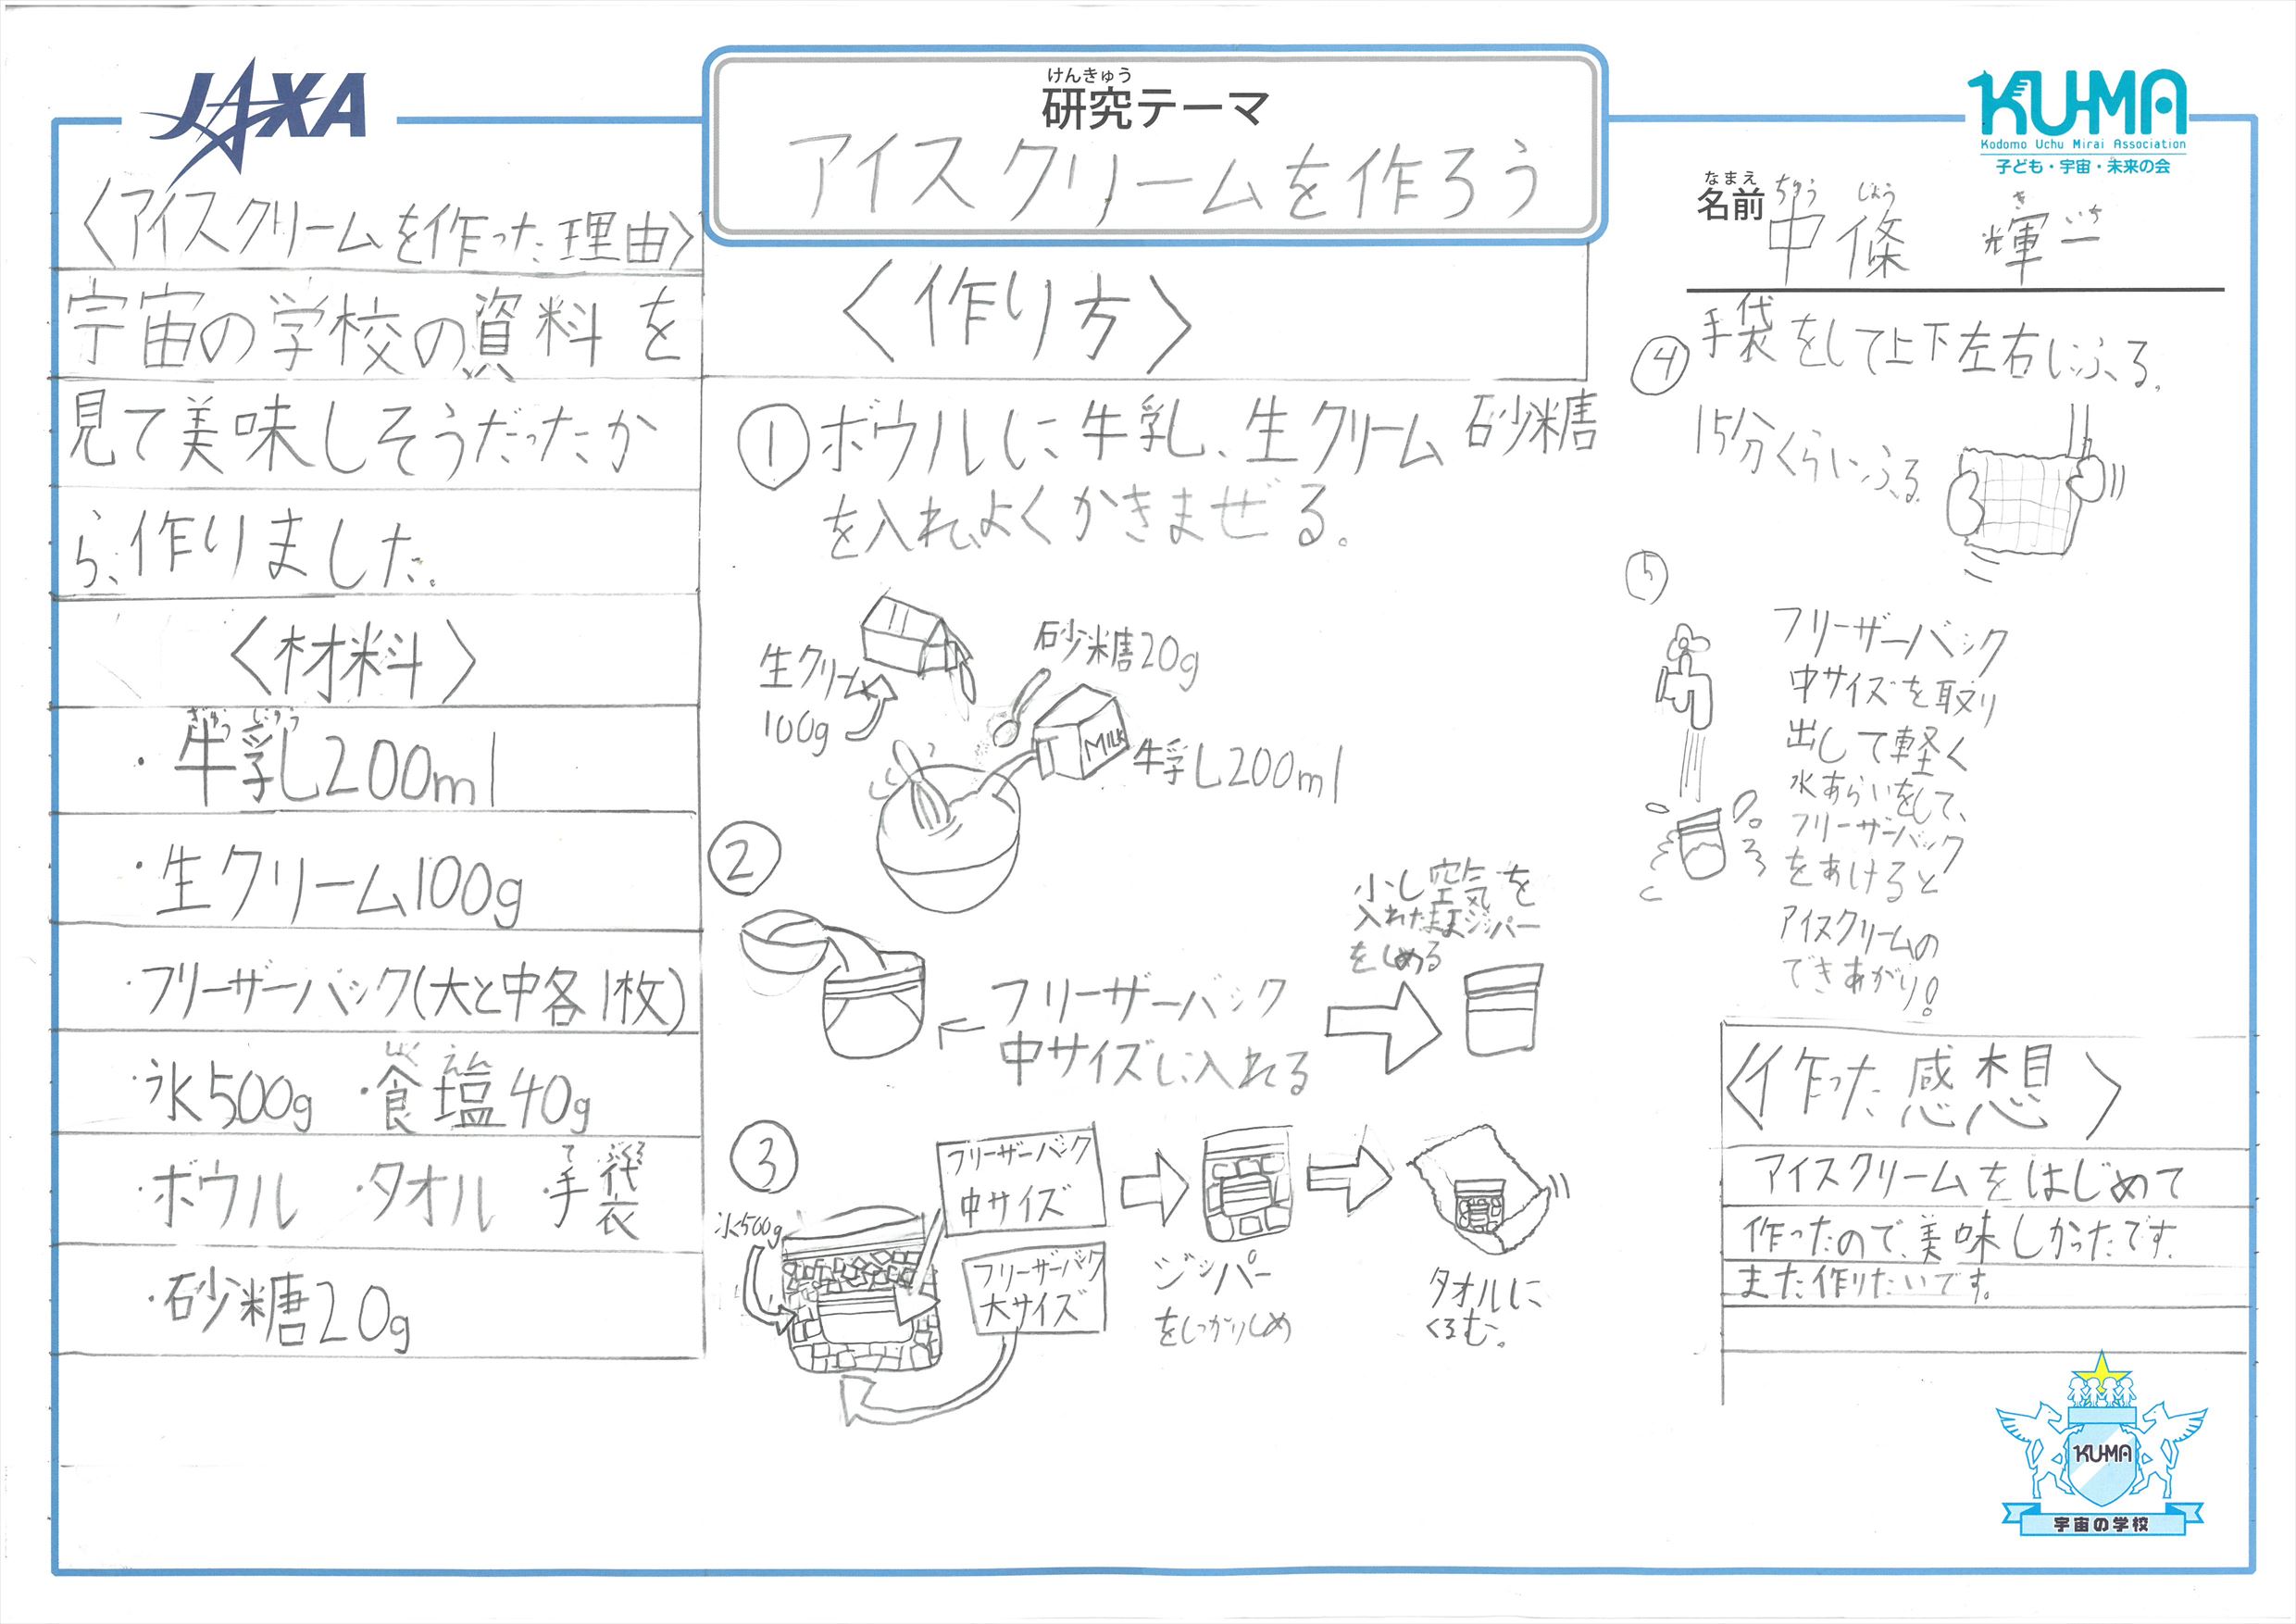 JAXA
けんきゅう
研究テーマ
アイスクリームを作ろう
KU-MA
Kodomo Uchu Mirai Association
子ども・宇宙・未来の会
なまえ ちゅう じょう き いち
名前 中條 輝一
〈アイスクリームを作った理由〉
宇宙の学校の資料を
見て美味しそうだったか
ら、作りました。
〈材料〉
ぎゅう にゅう
・牛乳200ml
・生クリーム100g
・フリーザーバック(大と中各1枚)
しょく えん
・氷500g ・食塩40g
て ぶくろ
・ボウル ・タオル ・手袋
・砂糖20g
〈作り方〉
①ボウルに牛乳、生クリーム 砂糖
を入れ、よくかきまぜる。
生クリーム
100g
砂糖20g
MILK
牛乳200ml
②
フリーザーバック
中サイズに入れる
少し空気を
入れたままジッパー
をしめる
③
氷500g
フリーザーバック
中サイズ
フリーザーバック
大サイズ
ジッパー
をしっかりしめ
タオルに
くるむ。
④手袋をして上下左右にふる。
15分くらいふる
⑤
フリーザーバック
中サイズを取り
出して軽く
水あらいをして、
フリーザーバック
をあけると
アイスクリームの
できあがり!
〈作った感想〉
アイスクリームをはじめて
作ったので、美味しかったです。
また作りたいです。
KU-MA
宇宙の学校